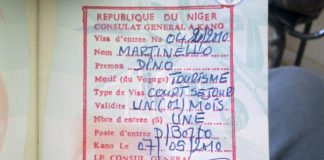 REPUBLIQUE DU NIGER
CONSULAT GENERAL A KANO
Visa d'entree No
Nom MARTINELLO
Prenom DINO
Motif (du Vogage) TOURISME
Type de Visa COURT SEJOUR
Validite UN (01) MOIS
Nbre d'entree (S) UNE
Poste d'entree
Kano Le 07/05/2010
LE CONSUL GENERAL